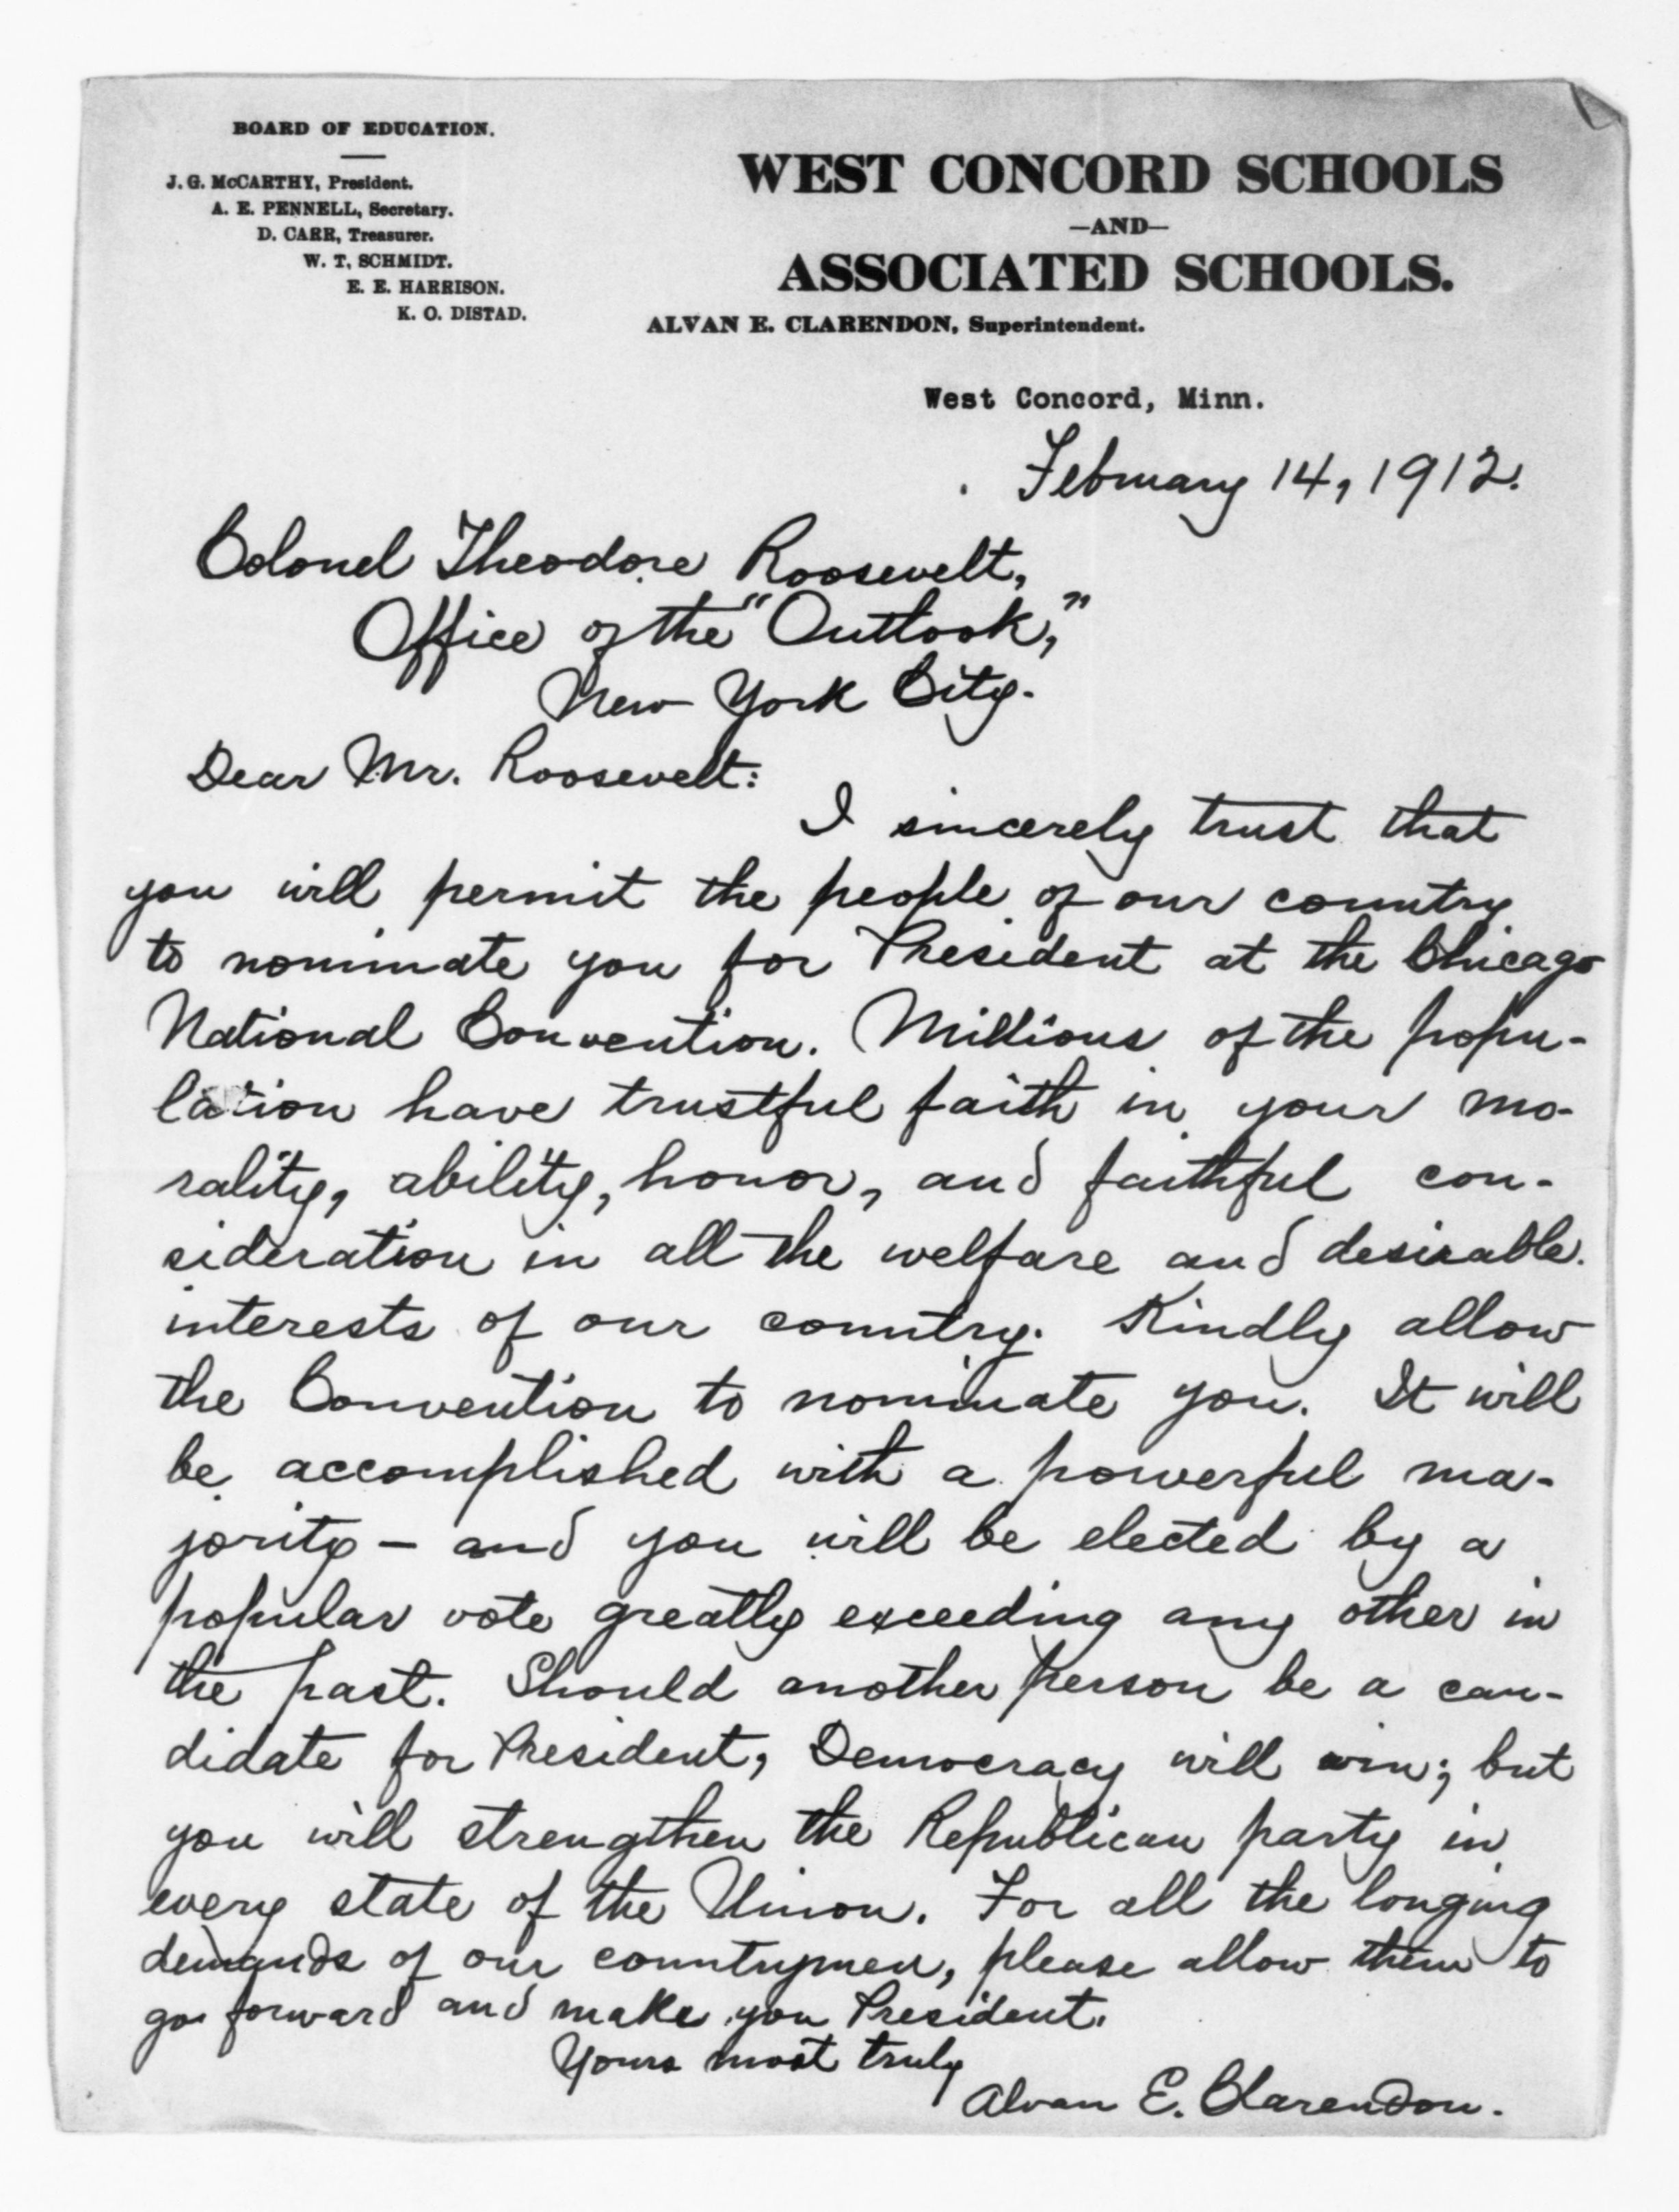 BOARD OF EDUCATION.
J. G. McCARTHY, President.
A. E. PENNELL, Secretary.
D. CARR, Treasurer.
W. T. SCHMIDT.
E. E. HARRISON.
K. O. DISTAD.
WEST CONCORD SCHOOLS
—AND—
ASSOCIATED SCHOOLS.
ALVAN E. CLARENDON, Superintendent.
West Concord, Minn.
February 14, 1912.
Colonel Theodore Roosevelt,
Office of the "Outlook,"
New York City.
Dear Mr. Roosevelt:
I sincerely trust that
you will permit the people of our country
to nominate you for President at the Chicago
National Convention. Millions of the popu-
lation have trustful faith in your mo-
rality, ability, honor, and faithful con-
sideration in all the welfare and desirable
interests of our country. Kindly allow
the Convention to nominate you. It will
be accomplished with a powerful ma-
jority – and you will be elected by a
popular vote greatly exceeding any other in
the past. Should another person be a can-
didate for President, Democracy will win; but
you will strengthen the Republican party in
every state of the Union. For all the longing
demands of our countrymen, please allow them to
go forward and make you President.
Yours most truly
Alvan E. Clarendon.